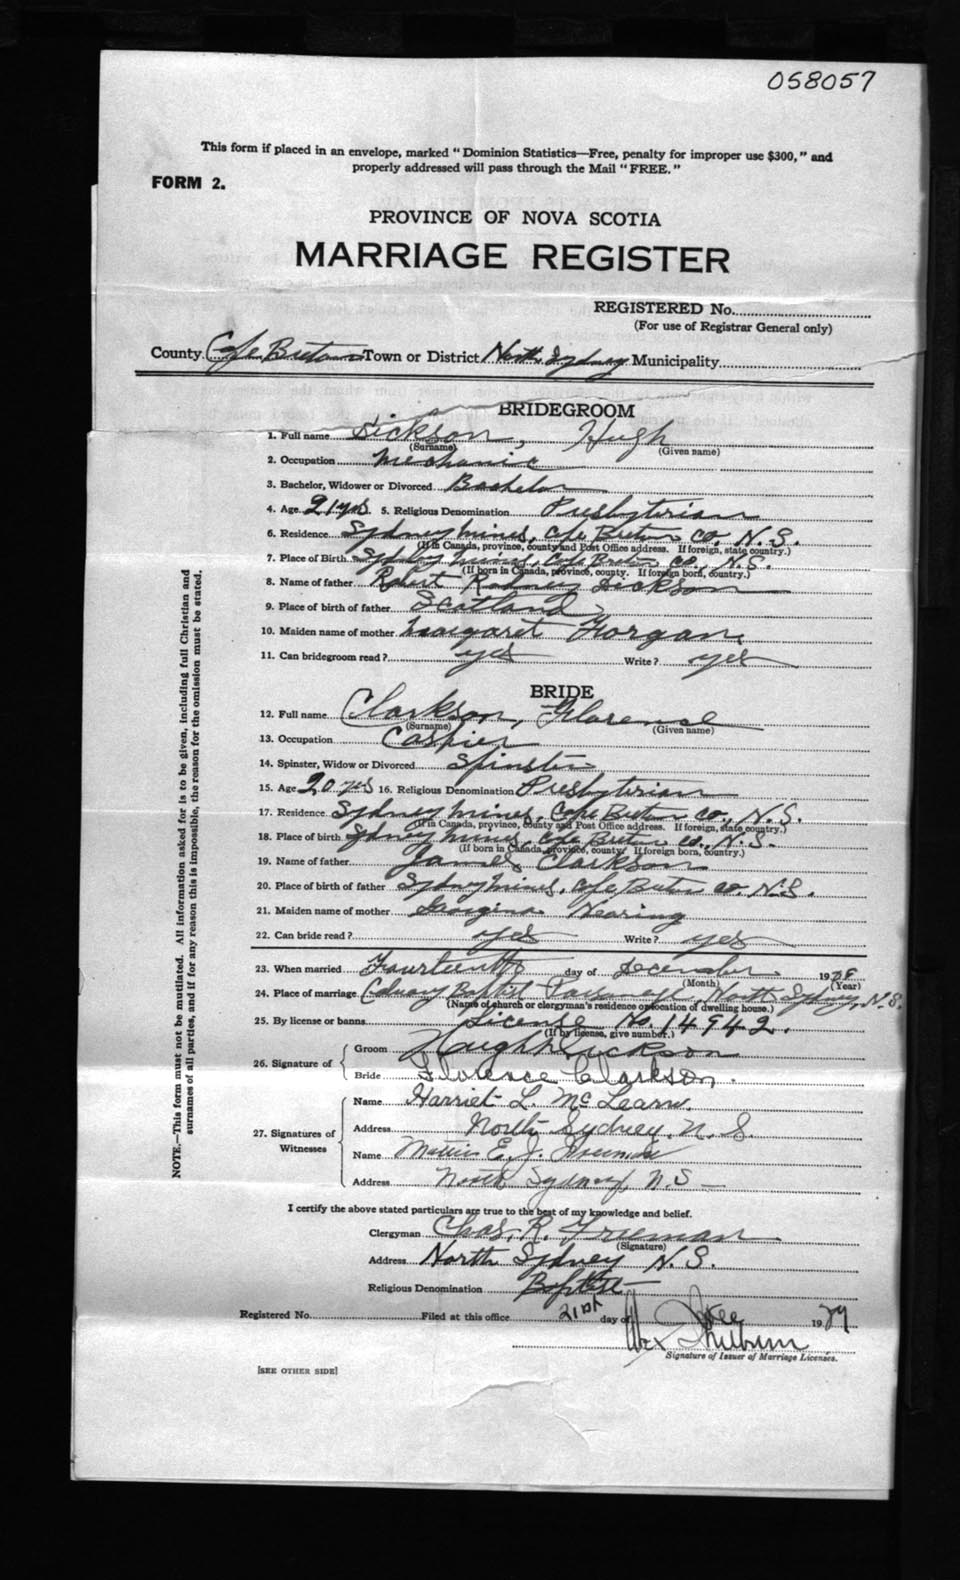 058057
This form if placed in an envelope, marked "Dominion Statistics—Free, penalty for improper use $300," and
properly addressed will pass through the Mail "FREE."
FORM 2.
PROVINCE OF NOVA SCOTIA
MARRIAGE REGISTER
REGISTERED No.
(For use of Registrar General only)
County Cape Breton Town or District North Sydney Municipality
BRIDEGROOM
1. Full name Dickson, Hugh
(Surname) (Given name)
2. Occupation Mechanic
3. Bachelor, Widower or Divorced Bachelor
4. Age 21 yrs. 5. Religious Denomination Presbyterian
6. Residence Sydney Mines, Cape Breton Co. N.S.
(If in Canada, province, county and Post Office address. If foreign, state country.)
7. Place of Birth Sydney Mines, Cape Breton Co., N.S.
(If born in Canada, province, county. If foreign born, country.)
8. Name of father Robert Rodney Dickson
9. Place of birth of father Scotland
10. Maiden name of mother Margaret Forgan
11. Can bridegroom read? yes Write? yes
BRIDE
12. Full name Clarkson, Florence
(Surname) (Given name)
13. Occupation Cashier
14. Spinster, Widow or Divorced Spinster
15. Age 20 yrs 16. Religious Denomination Presbyterian
17. Residence Sydney Mines, Cape Breton Co., N.S.
(If in Canada, province, county and Post Office address. If foreign, state country.)
18. Place of birth Sydney Mines, Cape Breton Co., N.S.
(If born in Canada, province, county. If foreign born, country.)
19. Name of father James Clarkson
20. Place of birth of father Sydney Mines, Cape Breton Co. N.S.
21. Maiden name of mother Georgina Nearing
22. Can bride read? yes Write? yes
23. When married Fourteenth day of December 1928
(Month) (Year)
24. Place of marriage Calvary Baptist Parsonage, North Sydney, N.S.
(Name of church or clergyman's residence or location of dwelling house.)
25. By license or banns License No. 14942.
(If by license, give number.)
26. Signature of Groom Hugh Dickson
Bride Florence Clarkson.
27. Signatures of Witnesses Name Harriet L. McLearn.
Address North Sydney, N.S.
Name E. J. Freeman
Address North Sydney, N.S
I certify the above stated particulars are true to the best of my knowledge and belief.
Clergyman Chas. R. Freeman
(Signature)
Address North Sydney N.S.
Religious Denomination Baptist
Registered No. Filed at this office 21st day of 19
Signature of Issuer of Marriage Licenses.
[SEE OTHER SIDE]
NOTE.—This form must not be mutilated. All information asked for is to be given, including full Christian and
surnames of all parties, and if for any reason this is impossible, the reason for the omission must be stated.